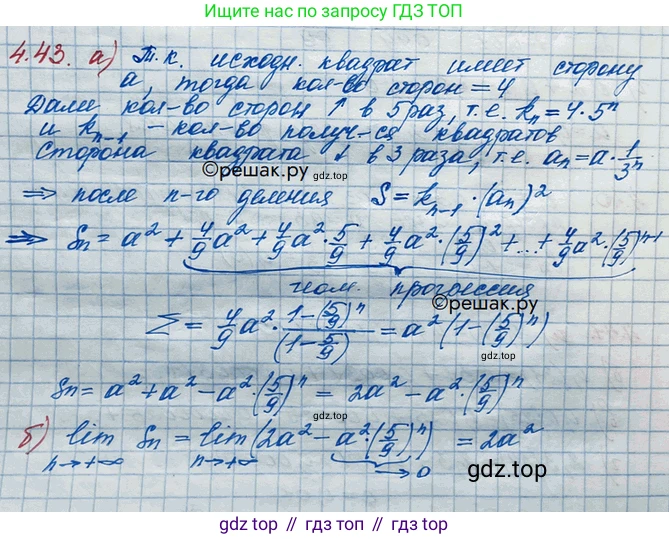 Ищите нас по запросу ГДЗ ТОП
4.43. а) Т.к. исходн. квадрат имеет сторону
a, тогда кол-во сторон = 4
Далее кол-во сторон ↑ в 5 раз, т.е. kₙ = 4·5ⁿ
и kₙ₋₁ – кол-во получ-ся квадратов
Сторона квадрата ↓ в 3 раза, т.е. aₙ = a·1/3ⁿ
©решак.ру
⇒ после n-го деления S = kₙ₋₁·(aₙ)²
⇒ Sₙ = a² + 4/9 a² + 4/9 a²·5/9 + 4/9 a²·(5/9)² + ... + 4/9 a²·(5/9)ⁿ⁻¹
геом. прогрессия
©решак.ру
Σ = 4/9 a²· (1-(5/9)ⁿ)/(1-5/9) = a²(1-(5/9)ⁿ)
gdz.top
Sₙ = a² + a² - a²·(5/9)ⁿ = 2a² - a²·(5/9)ⁿ
gdz.top
б) lim Sₙ = lim (2a² - a²·(5/9)ⁿ) = 2a²
n→+∞ n→+∞ →0
gdz.top
gdz.top // гдз.топ // gdz.top // гдз.топ